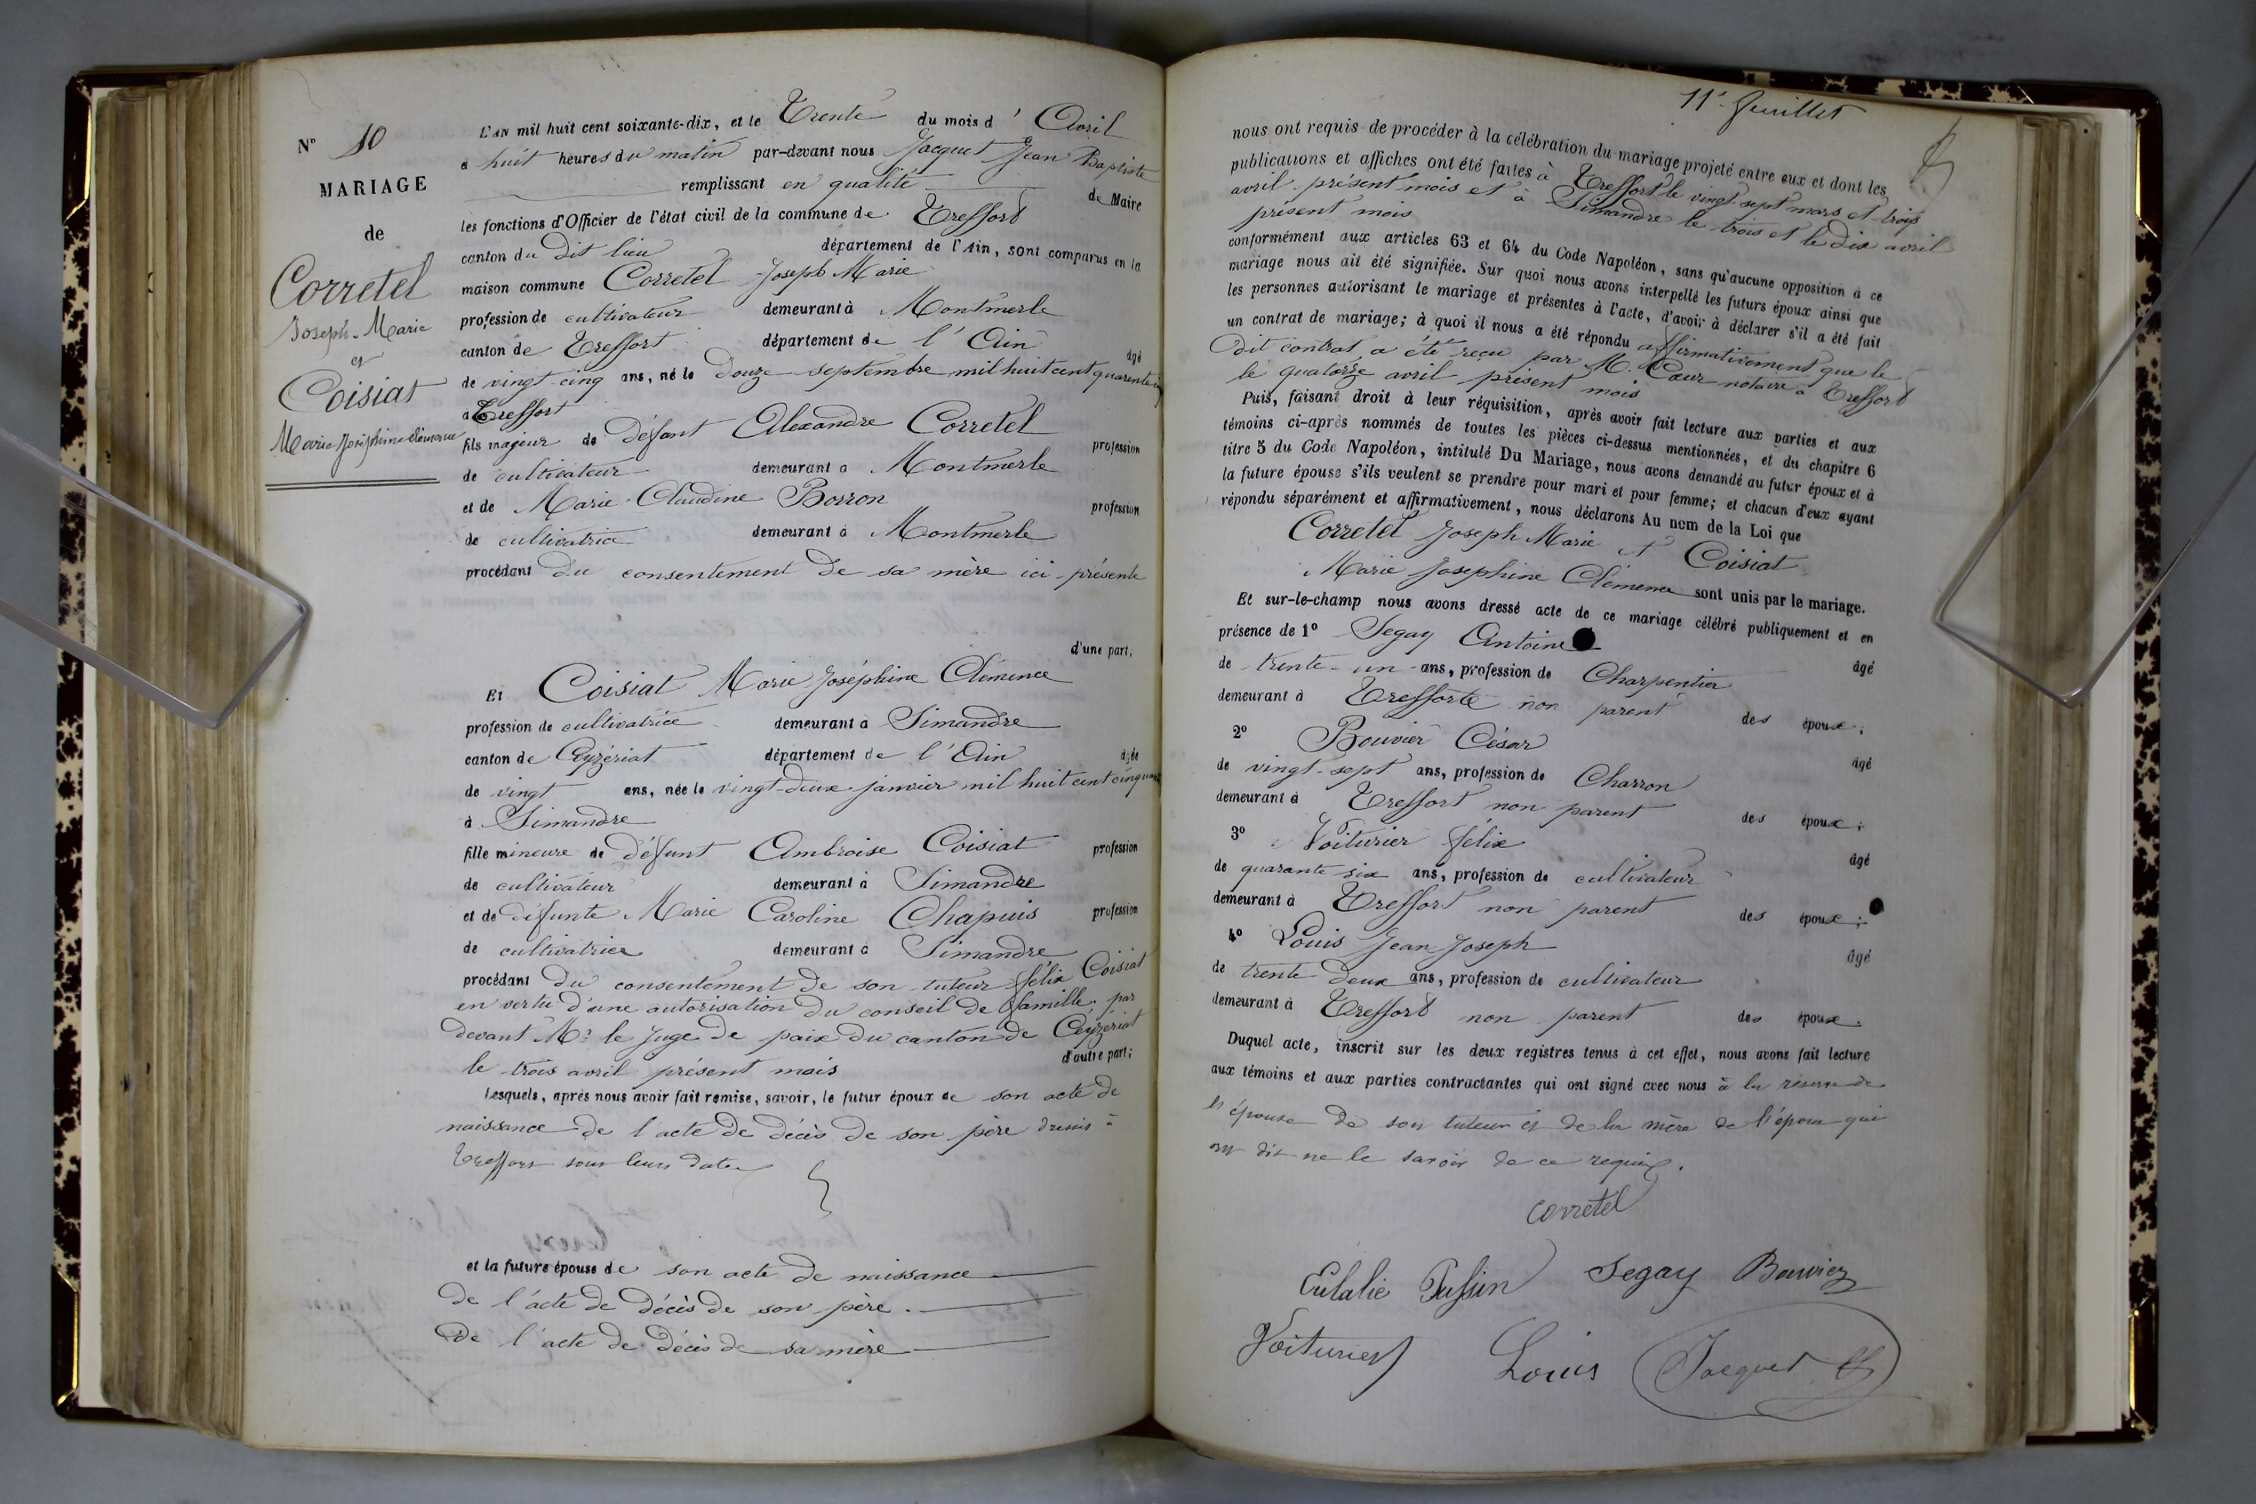 Nº 10
MARIAGE
de
Corretel
Joseph-Marie
et
Coisiat
Marie Joséphine Clémence
L'AN mil huit cent soixante-dix, et le Trente du mois d'Avril
à huit heures du matin par-devant nous Jacquet Jean Baptiste
remplissant en qualité de Maire
les fonctions d'Officier de l'état civil de la commune de Treffort
canton du dit lieu département de l'Ain, sont comparus en la
maison commune Corretel Joseph Marie
profession de cultivateur demeurant à Montmerle
canton de Treffort département de l'Ain âgé
de vingt-cinq ans, né le Douze septembre mil huit cent quarante-cinq
à Treffort
fils majeur de Défunt Alexandre Corretel profession
de cultivateur demeurant à Montmerle
et de Marie Claudine Borron profession
de cultivatrice demeurant à Montmerle
procédant du consentement de sa mère ici présente
d'une part;
Et Coisiat Marie Joséphine Clémence
profession de cultivatrice demeurant à Simandre
canton de Ceyzériat département de l'Ain âgée
de vingt ans, née le vingt-deux janvier mil huit cent cinquante
à Simandre
fille mineure de défunt Ambroise Coisiat profession
de cultivateur demeurant à Simandre
et de défunte Marie Caroline Chapuis profession
de cultivatrice demeurant à Simandre
procédant du consentement de son tuteur Félix Coisiat
en vertu d'une autorisation du conseil de famille par
devant Mr le Juge de paix du canton de Ceyzériat
le trois avril présent mois d'autre part;
Lesquels, après nous avoir fait remise, savoir, le futur époux de son acte de
naissance de l'acte de décès de son père dressés à
Treffort sous leurs dates
et la future épouse de son acte de naissance
de l'acte de décès de son père.
de l'acte de décès de sa mère
11e feuillet
nous ont requis de procéder à la célébration du mariage projeté entre eux et dont les
publications et affiches ont été faites à Treffort le vingt sept mars et trois
avril présent mois et à Simandre le trois et le dix avril
présent mois
conformément aux articles 63 et 64 du Code Napoléon, sans qu'aucune opposition à ce
mariage nous ait été signifiée. Sur quoi nous avons interpellé les futurs époux ainsi que
les personnes autorisant le mariage et présentes à l'acte, d'avoir à déclarer s'il a été fait
un contrat de mariage; à quoi il nous a été répondu affirmativement que le
dit contrat a été reçu par M. Cœur notaire à Treffort
le quatorze avril présent mois
Puis, faisant droit à leur réquisition, après avoir fait lecture aux parties et aux
témoins ci-après nommés de toutes les pièces ci-dessus mentionnées, et du chapitre 6
titre 5 du Code Napoléon, intitulé Du Mariage, nous avons demandé au futur époux et à
la future épouse s'ils veulent se prendre pour mari et pour femme; et chacun d'eux ayant
répondu séparément et affirmativement, nous déclarons Au nom de la Loi que
Corretel Joseph Marie et Coisiat
Marie Josephine Clémence sont unis par le mariage.
Et sur-le-champ nous avons dressé acte de ce mariage célébré publiquement et en
présence de 1º Segay Antoine âgé
de trente-un ans, profession de Charpentier
demeurant à Trefforte non parent des époux;
2º Bouvier César âgé
de vingt-sept ans, profession de Charron
demeurant à Treffort non parent des époux;
3º Voiturier Félix âgé
de quarante six ans, profession de cultivateur
demeurant à Treffort non parent des époux;
4º Louis Jean Joseph âgé
de trente deux ans, profession de cultivateur
demeurant à Treffort non parent des époux.
Duquel acte, inscrit sur les deux registres tenus à cet effet, nous avons fait lecture
aux témoins et aux parties contractantes qui ont signé avec nous à la réserve de
l'épouse de son tuteur et de la mère de l'époux qui
ont dit ne le savoir de ce requis.
Corretel
Eulalie Passin Segay Bouvier
Voiturier Louis Jacquet